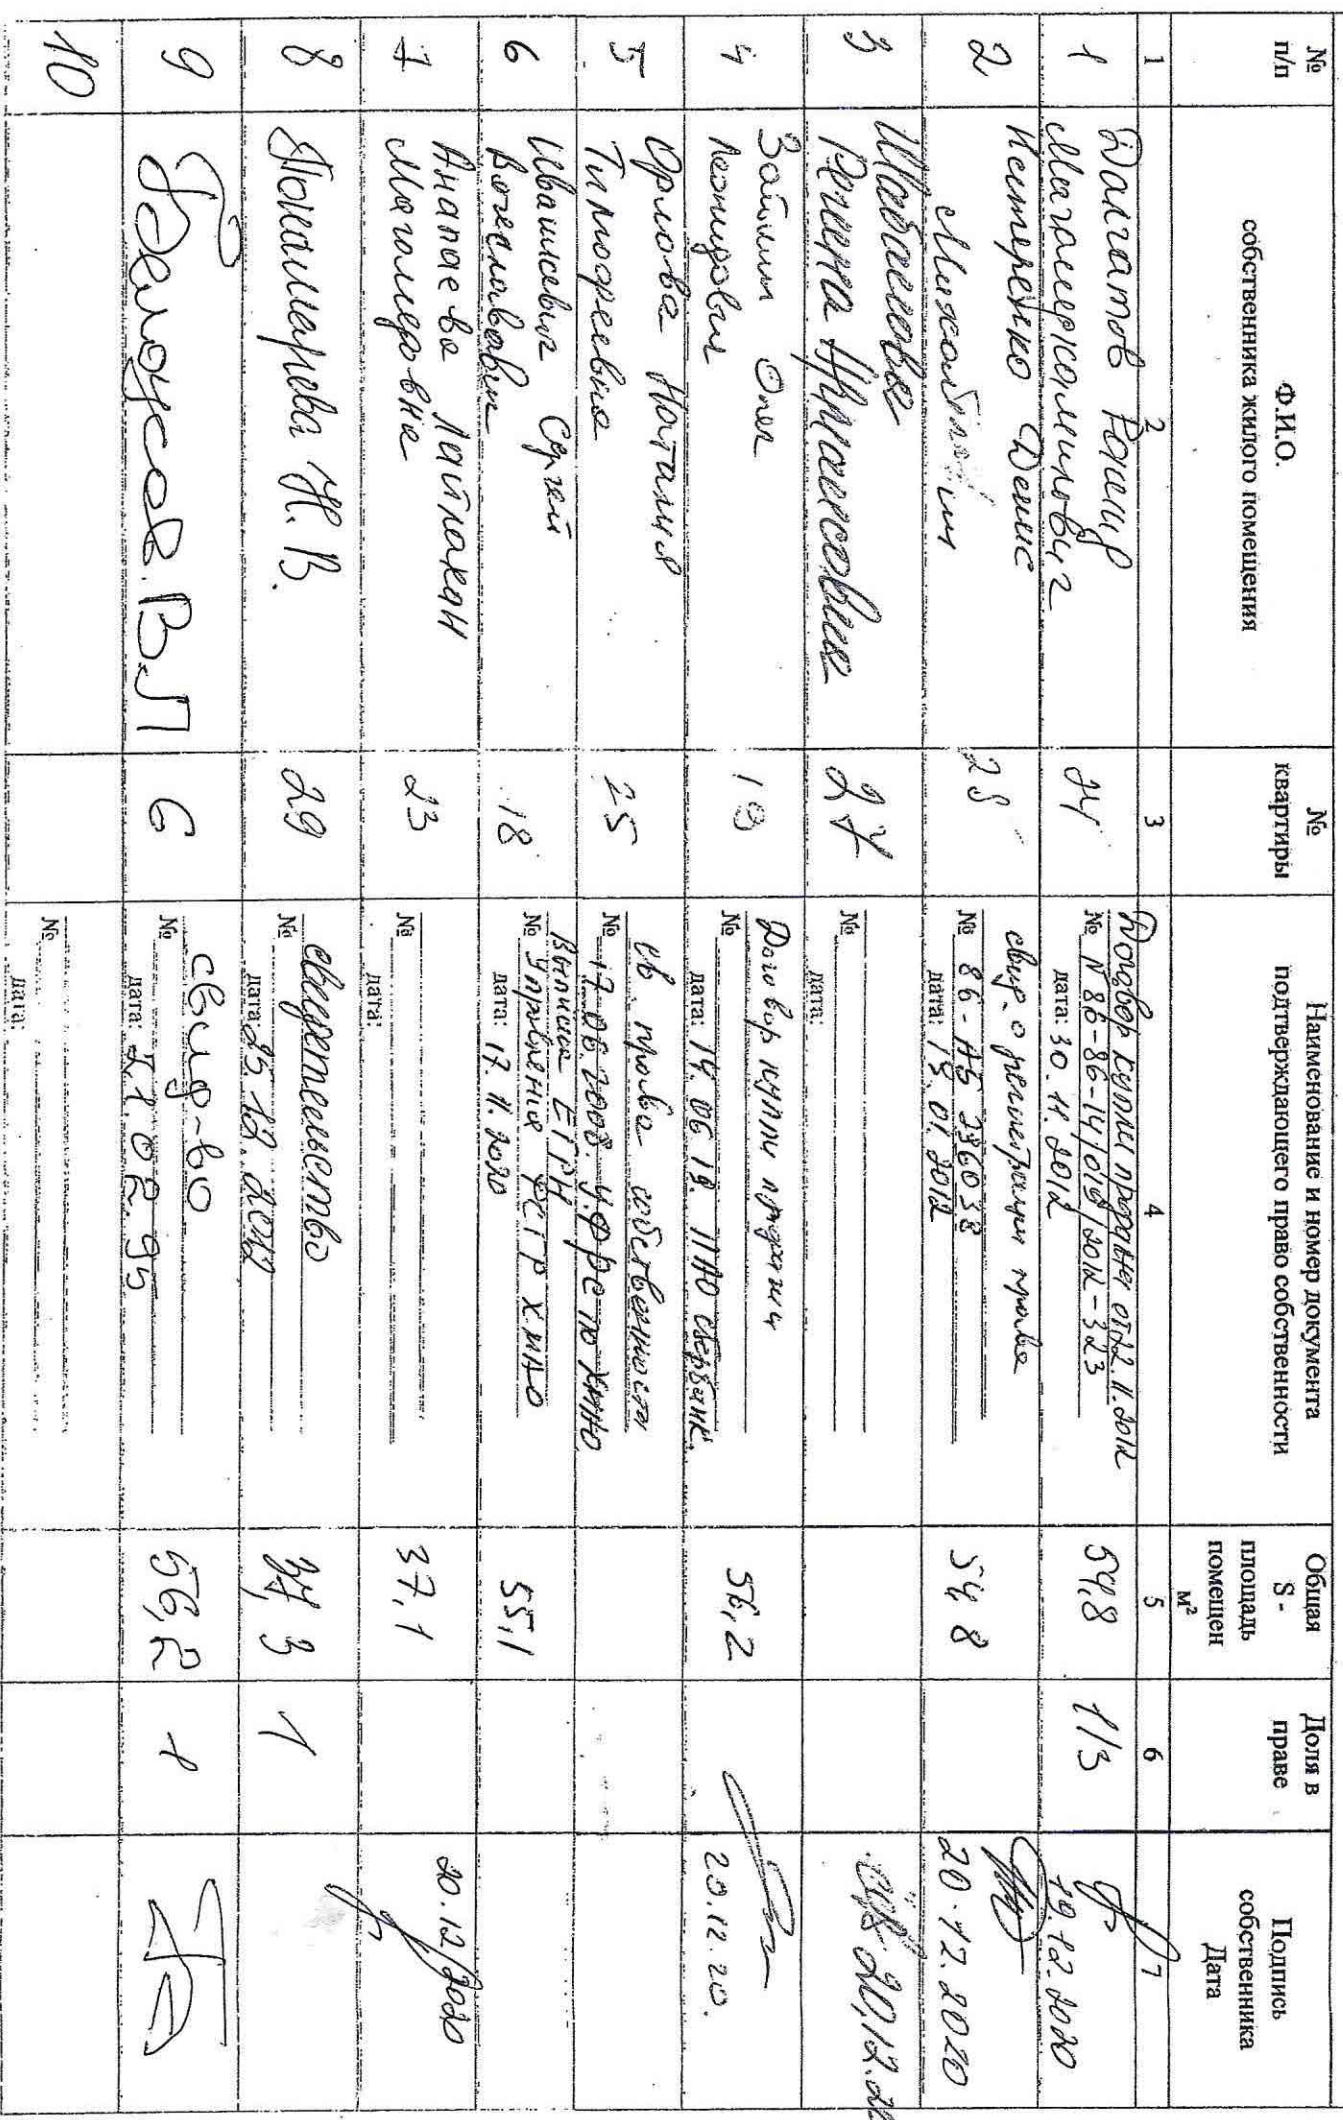 № п/п
Ф.И.О. собственника жилого помещения
№ квартиры
Наименование и номер документа подтверждающего право собственности
Общая S - площадь помещен м²
Доля в праве
Подпись собственника Дата
1 2 3 4 5 6 7
1 Далгатов Расир
Магомедкамилович
24
Договор купли продажи от 22.11.2012
№ N 86-86-14/019/2012-323
дата: 30.11.2012
54,8
1/3
19.12.2020
2 Нестеренко Денис
28
свид. о регистрации права
№ 86-АБ 336038
дата: 13.01.2012
54 8
20.12.2020
3
27
№
дата:
20,12.20
4
Олег
Леонидович
19
Договор купли продажи
№
дата: 14.06.19. ПАО Сбербанк.
56,2
20.12.20.
5 Орлова Наталия
Тимофеевна
25
св права собственности
№ 17.06.2008. УФРС по ХМАО
6 Ивашкевич Сергей
Вячеславович
18
Выписка ЕГРН
№ Управления ФСГР ХМАО
дата: 17.11.2020
55,1
7 Анапаева
Магомедовна
23
№
дата:
37,1
20.12/2020
8
Н.В.
29
свидетельство
№
дата: 25.12.2012
37,3
1
9 Белоусов. В.Л
6
свид-во
№
дата:
56,2
1
10
№
дата: